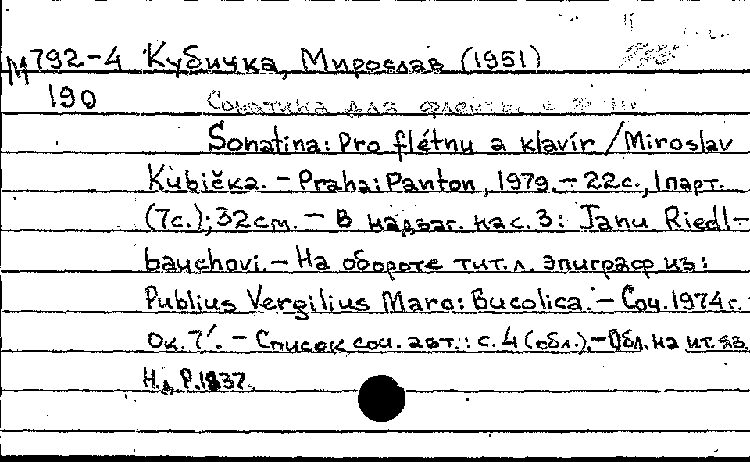 М 792-4 Кубичка, Мирослав (1951)
190 Сонатина для флейты
Sonatina: Pro flétnu a klavír / Miroslav
Kubička. - Praha: Panton, 1979. - 22с., 1 парт.
(7с.); 32 см. - В надзаг. на с. 3: Janu Riedl-
bauchovi. - На обороте тит. л. эпиграф из:
Publius Vergilius Maro: Bucolica. - Соч. 1974 г.
Ок. 7'. - Список соч. авт.: с. 4 (обл.). - Обл. на ит. яз.
Н. д. P. 1837.